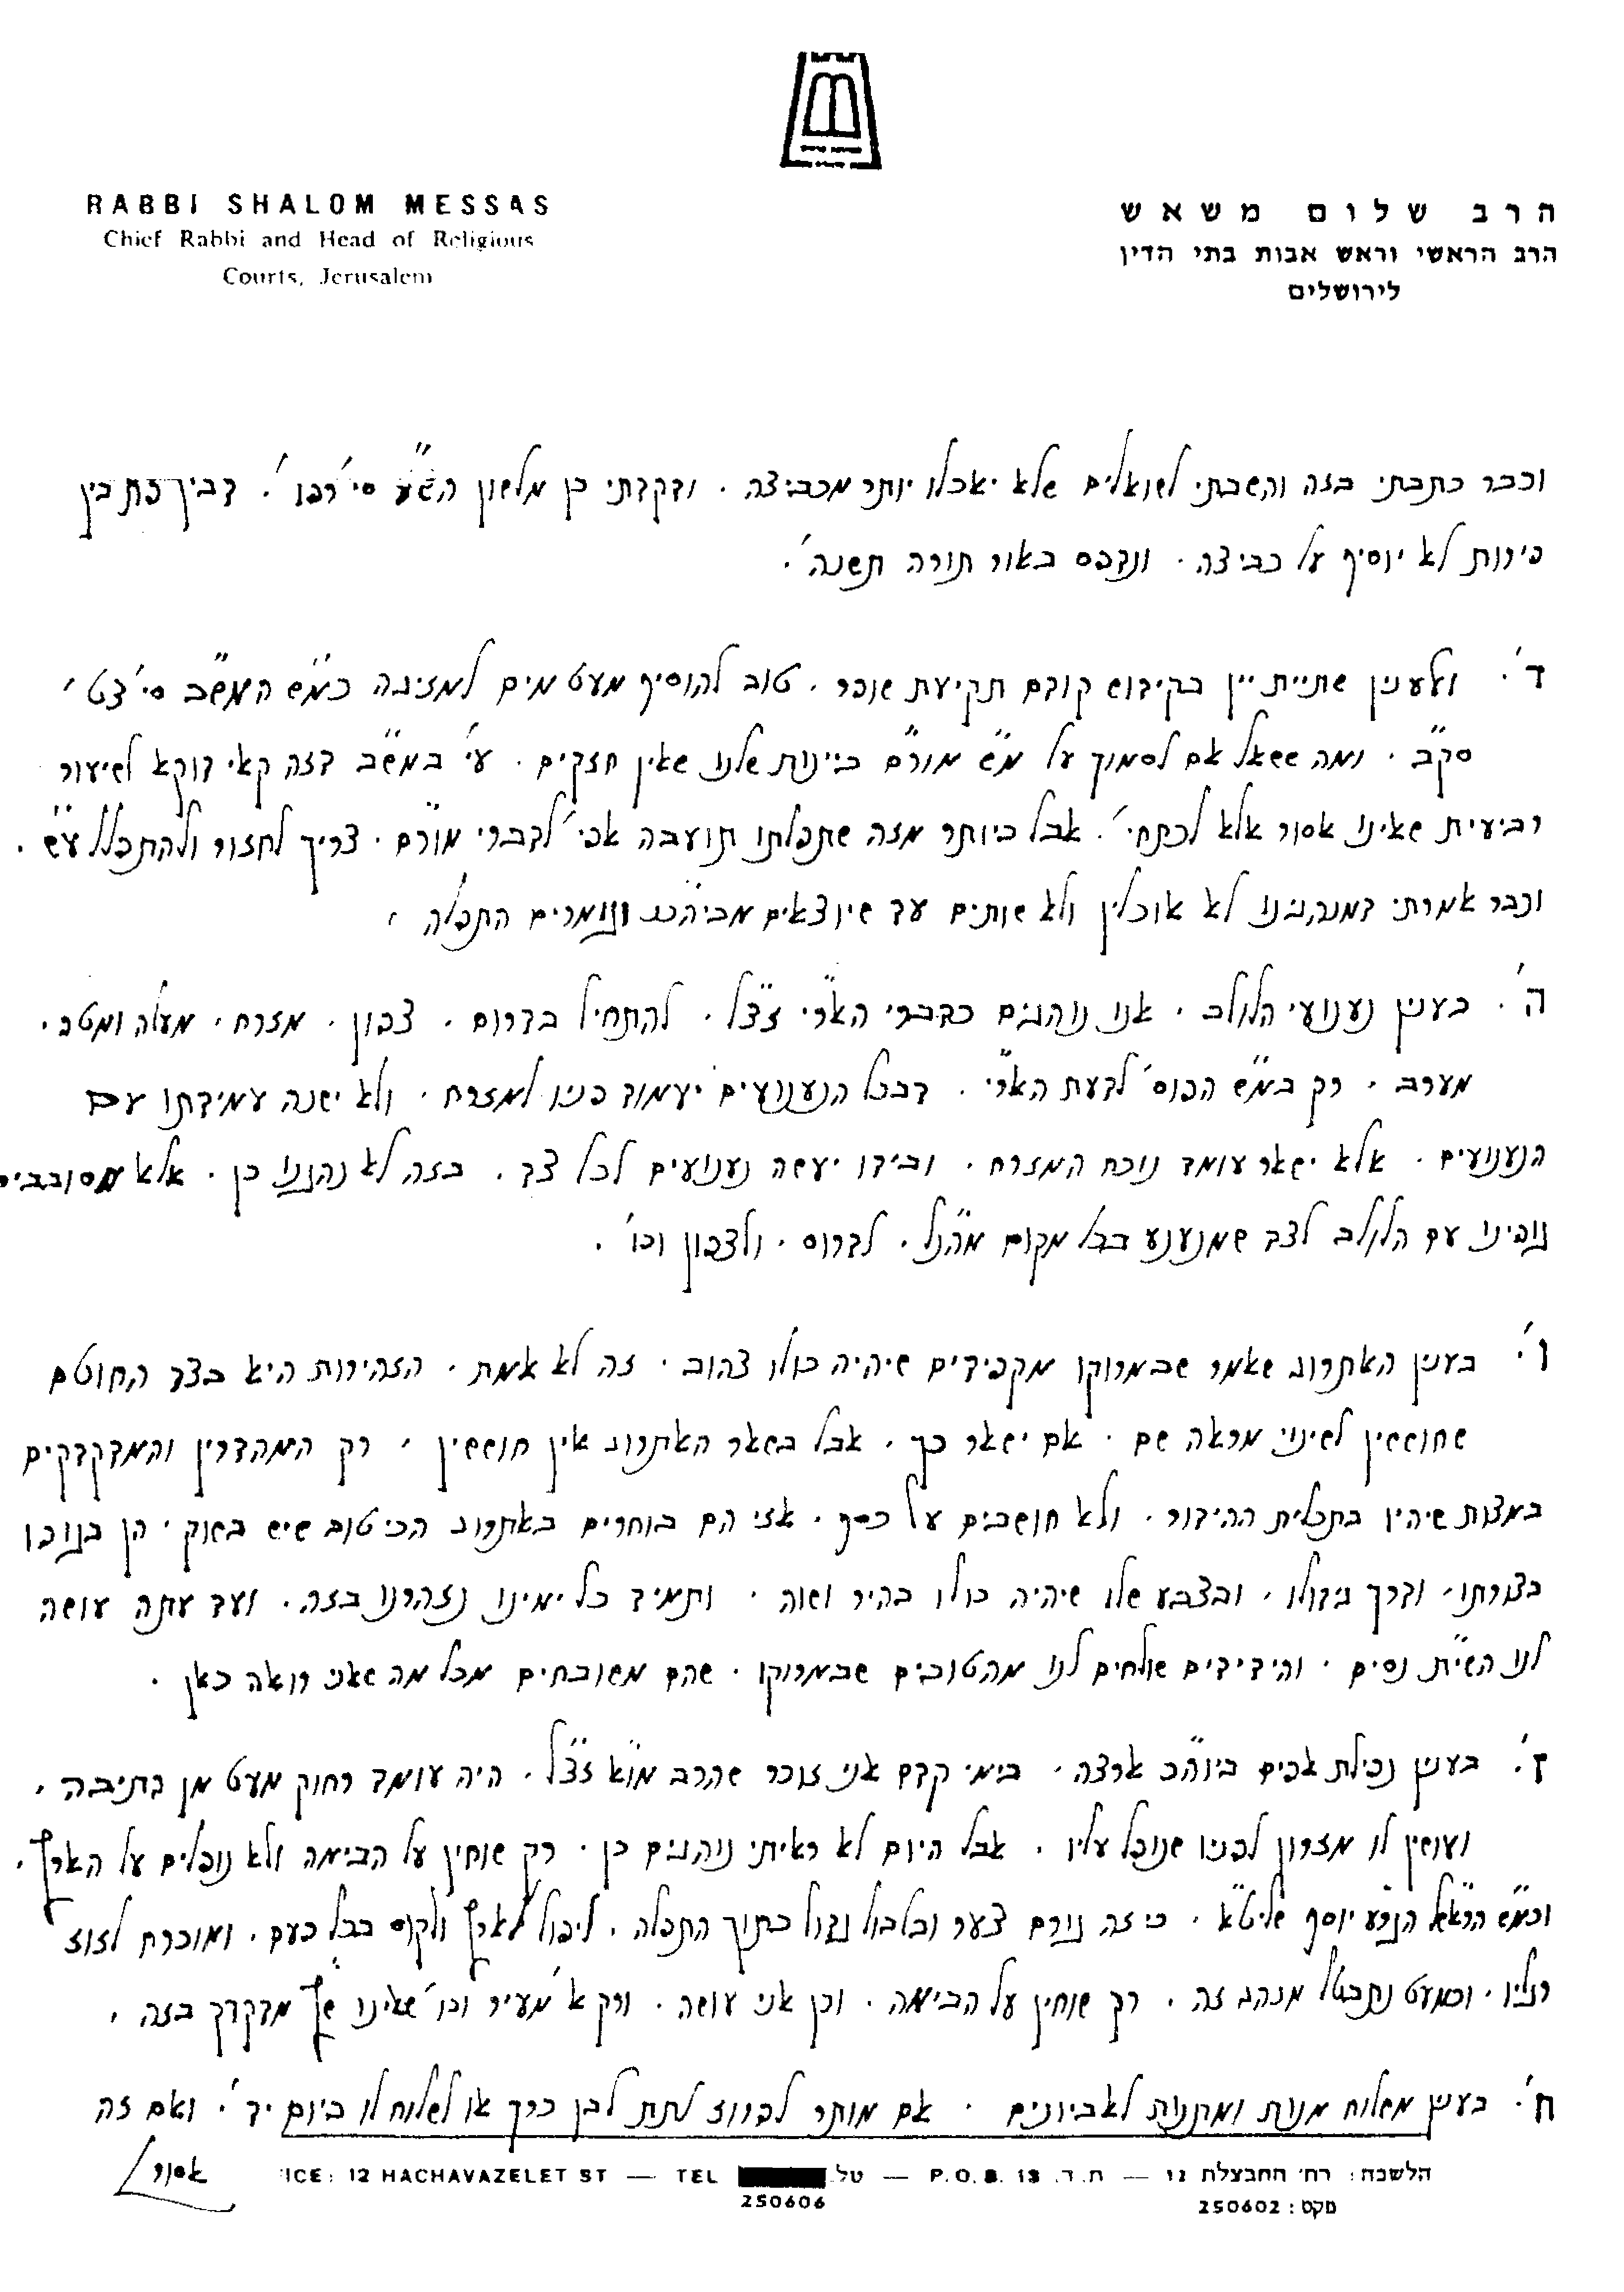 RABBI SHALOM MESSAS
Chief Rabbi and Head of Religious
Courts, Jerusalem
הרב שלום משאש
הרב הראשי וראש אבות בתי הדין
לירושלים
וכבר כתבתי בזה והשבתי לשואלים שלא יאכלו יותר מכביצה. ודקדתי כן מלשון הש"ע סי' רפו'. דבין פת בין
פירות לא יוסיף על כביצה. ונדפס באור תורה תשנה'.
ד'. ולענין שתיית יין בקידוש קודם תקיעת שופר. טוב להוסיף מעט מים למזיגה כמ"ש המ"ב סי' צט'
סק"ב. ומה ששאל אם לסמוך על מ"ש מור"ם ביינות שלנו שאין חזקים. עי' במש"ב דזה קאי דוקא לשיעור
רביעית שאינו אסור אלא לכתחי'. אבל ביותר מזה שתפלתו תועבה אפי' לדברי מור"ם. צריך לחזור ולהתפלל ע"ש.
וכבר אמרתי דמנהגינו לא אוכלין ולא שותים עד שיוצאים מביהכנ וגומרים התפלה.
ה'. בענין נענועי הלולב. אנו נוהגים כדברי האר"י זצ"ל. להתחיל בדרום. צפון. מזרח. מעלה ומטה.
מערב. רק במ"ש הפוס' לדעת האר"י. דבכל הנענועים יעמוד פניו למזרח. ולא ישנה עמידתו עם
הנענועים. אלא ישאר עומד נוכח המזרח. ובידו יעשה נענועים לכל צד. בזה לא נהגנו כן. אלא מסובבים
גופינו עם הלולב לצד שמנענע בכל מקום מהנ"ל. לדרום. ולצפון וכו'.
ו'. בענין האתרוג שאמר שבמרוקו מקפידים שיהיה כולו צהוב. זה לא אמת. הזהירות היא בצד החוטם
שחוששין לשינוי מראה שם. אם ישאר כך. אבל בשאר האתרוג אין חוששין. רק המהדרין והמדקדקים
במצות שיהיו בתכלית ההידור. ולא חושבים על כסף. אזי הם בוחרים באתרוג הכי טוב שיש בשוק. הן בגופו
בצורתו. ודרך גידולו. ובצבע שלו שיהיה כולו בהיר ושוה. ותמיד כל ימינו נזהרנו בזה. ועד עתה עושה
לנו השי"ת נסים. והידידים שולחים לנו מהטובים שבמרוקו. שהם משובחים מכל מה שאני רואה כאן.
ז'. בענין נפילת אפים ביוה"כ ארצה. בימי קדם אני זוכר שהרב מו"א זצ"ל. היה עומד רחוק מעט מן התיבה.
ועושין לו מזרון לפניו שנופל עליו. אבל היום לא ראיתי נוהגים כן. רק שוחין על הבימה ולא נופלים על הארץ.
וכמ"ש הרא"ל הגר"ע יוסף שליט"א. כי זה גורם צער ובלבול גדול בתוך התפלה. ליפול לארץ ולקום בכל פעם. ומוכרח לזוז
רגליו. וכמעט נתבטל מנהג זה. רק שוחין על הבימה. וכן אני עושה. ורק א' מעיר וכו' שאינו מדקדק בזה.
ח'. בענין משלוח מנות ומתנות לאביונים. אם מותר לפרוז לתת לבן כרך או לשלוח לו ביום יד'. ואם זה
אסור
ICE: 12 HACHAVAZELET ST — TEL טל. — P.O.B. 13 ת.ד. — הלשכה: רח' החבצלת 12
250606
פקס: 250602